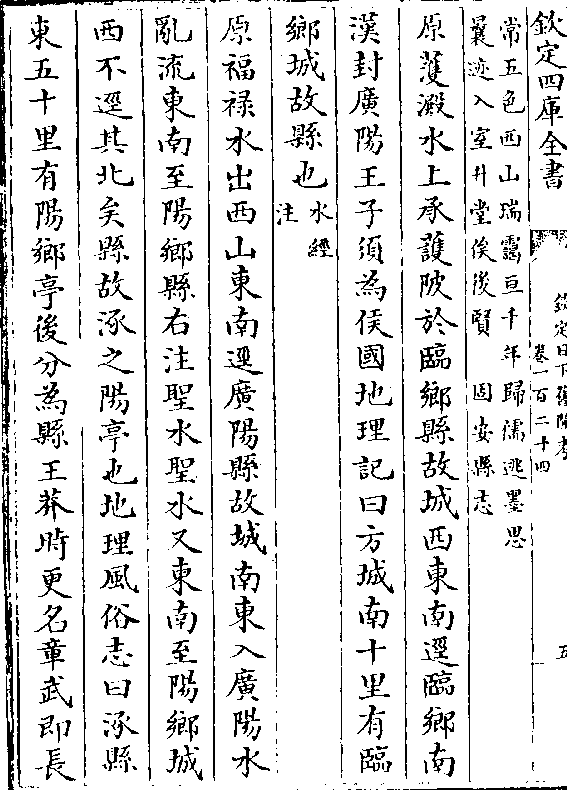 欽定四庫全書
欽定日下舊聞考
卷一百二十四
五
常五色西山瑞靄亘千年歸儒逃墨思
曩迹入室升堂俟後賢 固安縣志
原䕶澱水上承䕶陂於臨鄉縣故城西東南逕臨鄉南
漢封廣陽王子須為侯國地理記曰方城南十里有臨
鄉城故縣也水經
注
原福禄水出西山東南逕廣陽縣故城南東入廣陽水
亂流東南至陽鄉縣右注聖水聖水又東南至陽鄉城
西不逕其北矣縣故涿之陽亭也地理風俗志曰涿縣
東五十里有陽鄉亭後分為縣王莽時更名章武即長